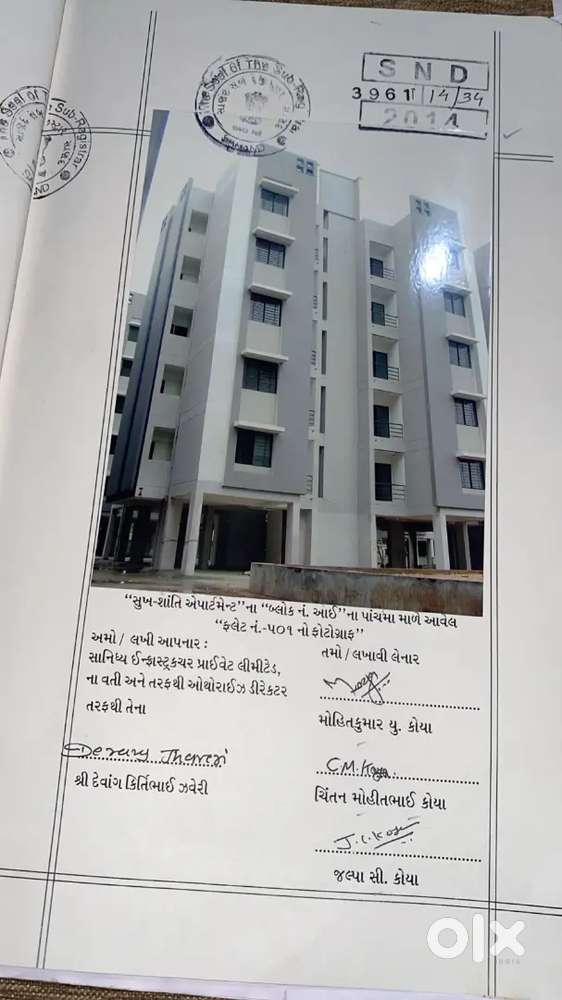 The Seal of The Sub-Registrar
SND
3961 14/34
2014
The Seal of
Sub-Registrar
"સુખ-શાંતિ એપાર્ટમેન્ટ"ના "બ્લોક નં. આઈ"ના પાંચમા માળે આવેલ
"ફ્લેટ નં.-૫૦૧ નો ફોટોગ્રાફ"
અમો / લખી આપનાર :
સાનિધ્ય ઈન્ફ્રાસ્ટ્રકચર પ્રાઈવેટ લીમીટેડ,
ના વતી અને તરફથી ઓથોરાઈઝ ડીરેકટર
તરફથી તેના
Devang Jhaveri
શ્રી દેવાંગ કિર્તિભાઈ ઝવેરી
તમો / લખાવી લેનાર
મોહિતકુમાર યુ. કોયા
C.M. Koya.
ચિંતન મોહીતભાઈ કોયા
J.C. Koya
જલ્પા સી. કોયા
olx